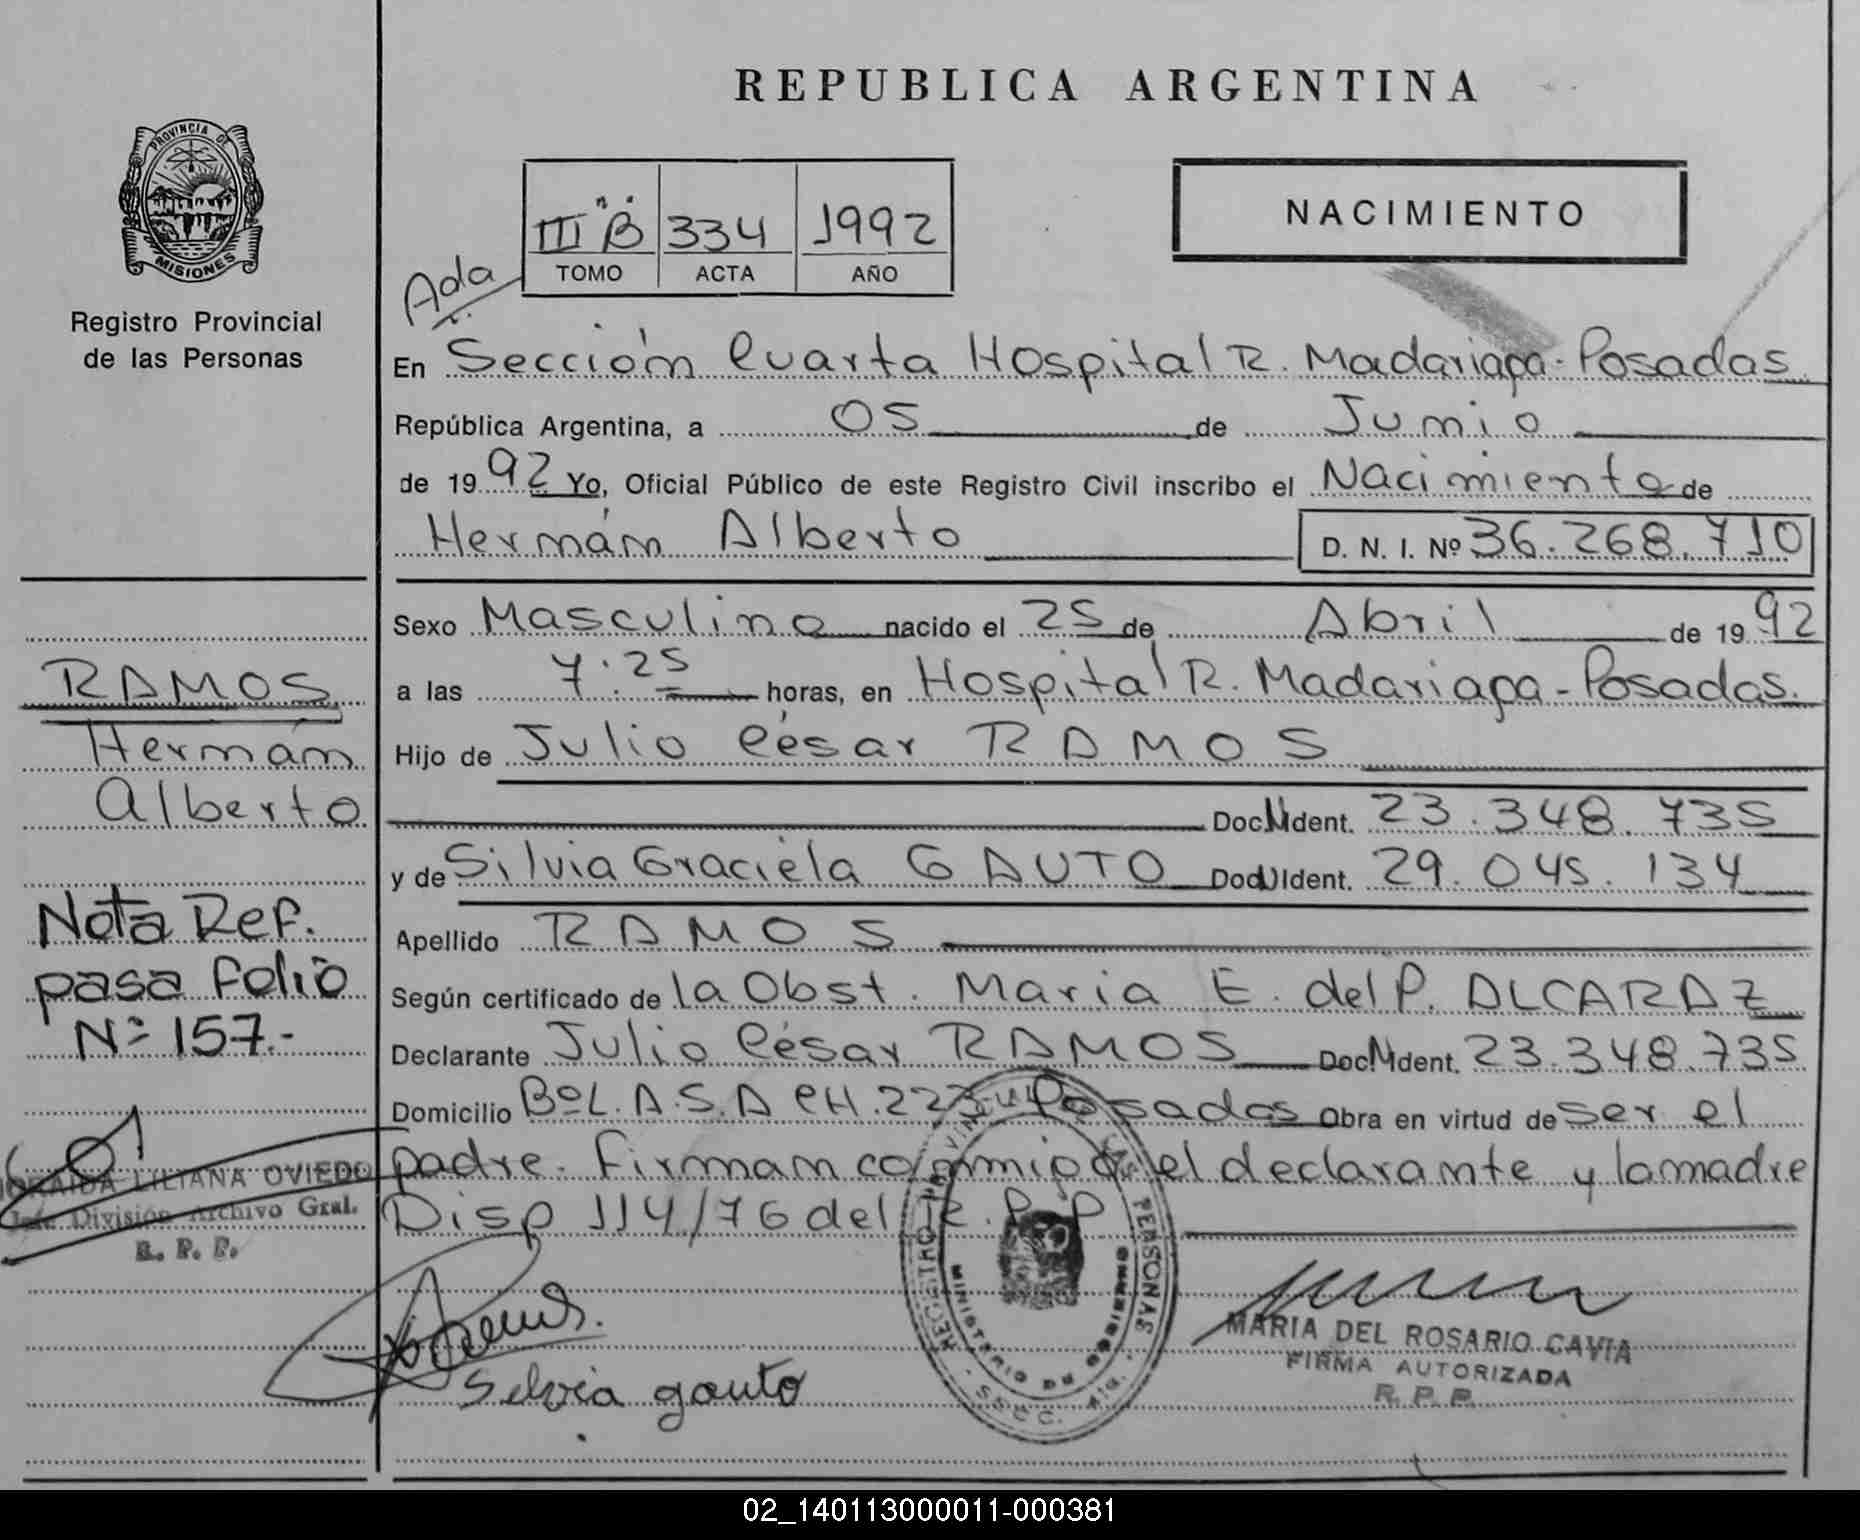 REPUBLICA ARGENTINA
PROVINCIA DE
MISIONES
Registro Provincial
de las Personas
III "B" 334 1992
TOMO ACTA AÑO
NACIMIENTO
Ada
En Sección Cuarta Hospital R. Madariaga - Posadas.
República Argentina, a 05 de Junio
de 1992 Yo, Oficial Público de este Registro Civil inscribo el Nacimiento de
Hernán Alberto D. N. I. Nº 36.268.710
Sexo Masculino nacido el 25 de Abril de 1992
a las 7:25 horas, en Hospital R. Madariaga - Posadas.
Hijo de Julio César RAMOS
Doc. Ident. 23.348.735
y de Silvia Graciela GAUTO Doc. Ident. 29.045.134
Apellido RAMOS
Según certificado de la Obst. Maria E. del P. ALCARAZ
Declarante Julio César RAMOS Doc. Ident. 23.348.735
Domicilio Bº L.A.S.A CH. 223 Posadas Obra en virtud de ser el
padre. Firman conmigo el declarante y la madre
Disp 114/76 del R.P.P
RAMOS
Hernán
Alberto
Nota Ref.
pasa folio
Nº 157.-
LILIANA OVIEDO
Jefe División Archivo Gral.
R. P. P.
Silvia gauto
REGISTRO PROVINCIAL DE LAS PERSONAS
MINISTERIO DE GOBIERNO
MARIA DEL ROSARIO CAVIA
FIRMA AUTORIZADA
R. P. P.
02_140113000011-000381